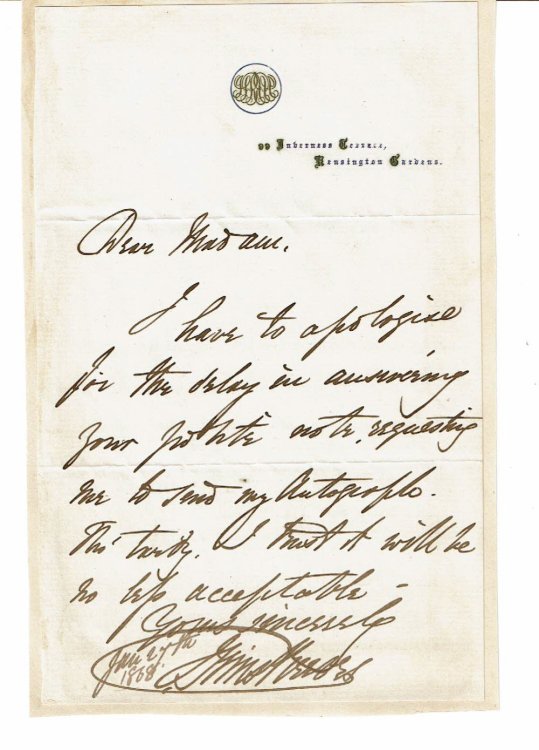 99 Inverness Terrace,
Kensington Gardens.
Dear Madam.
I have to apologise
for the delay in answering
your polite note, requesting
me to send my Autograph.
Tho' tardy. I trust it will be
no less acceptable -
Yours sincerely
Jan 27th
1868